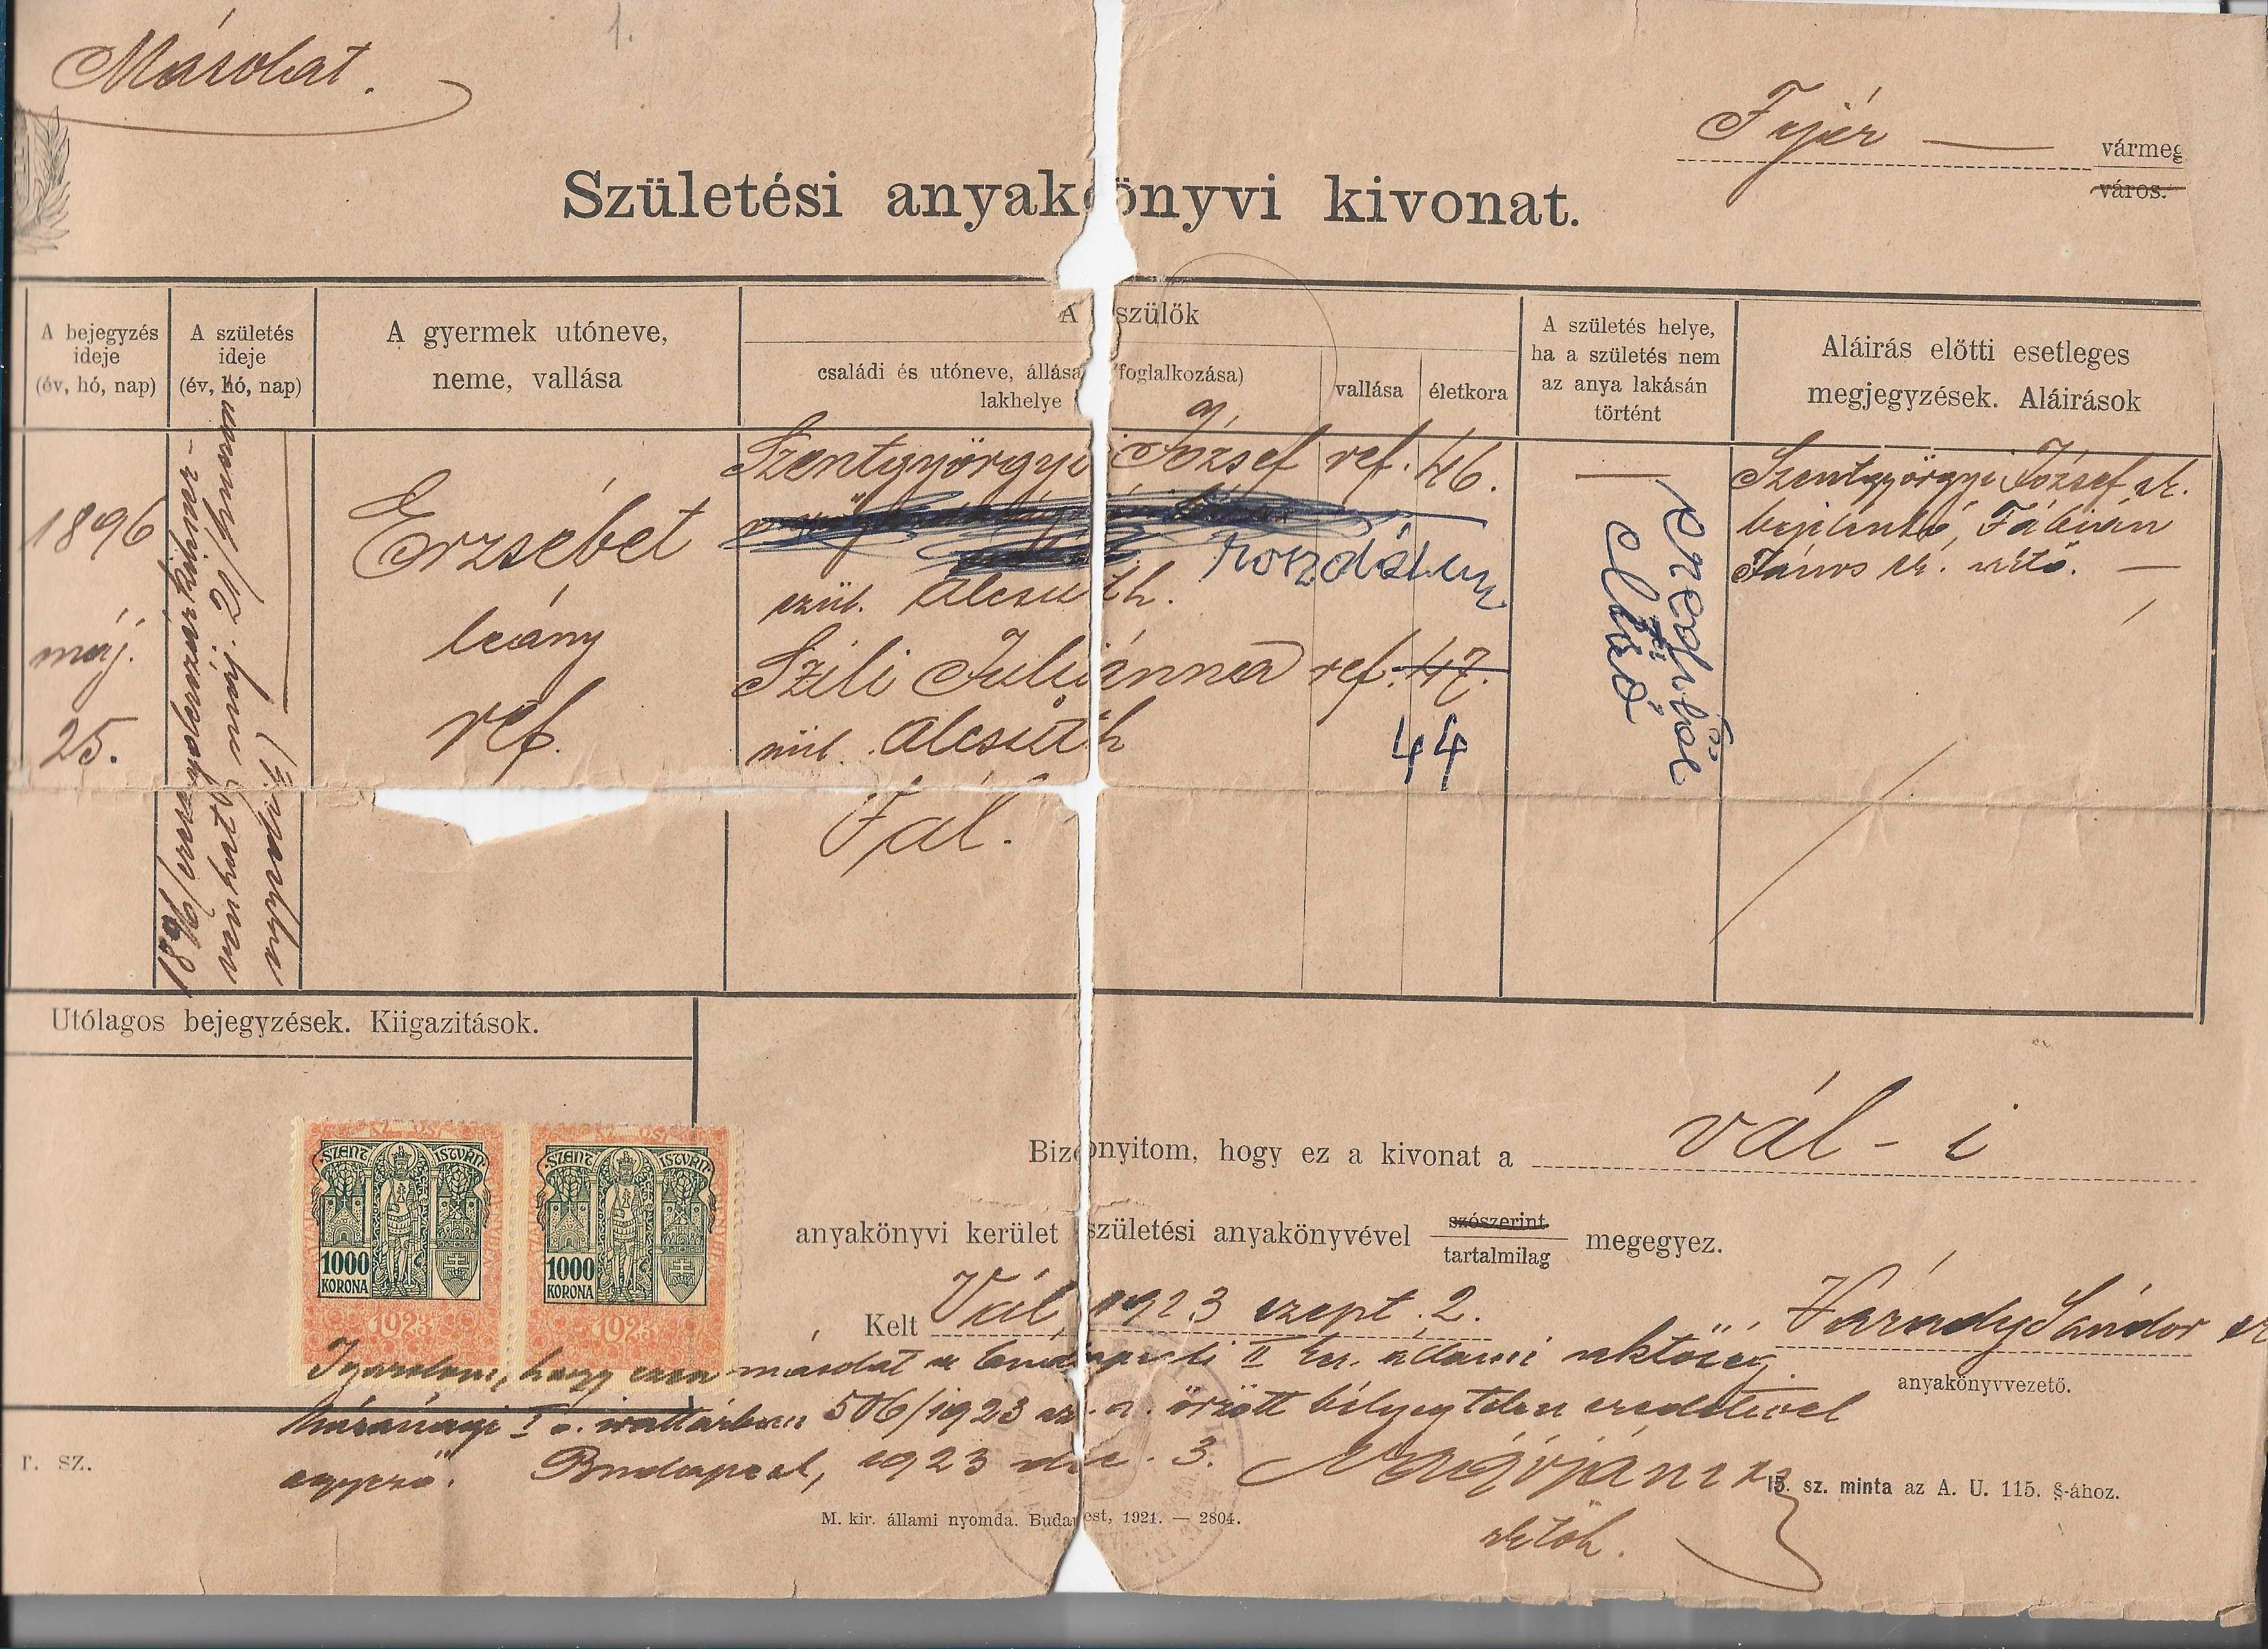 1.
Másolat.
Fejér — vármeg
város.
Születési anyakönyvi kivonat.
A bejegyzés ideje (év, hó, nap)
A születés ideje (év, hó, nap)
A gyermek utóneve, neme, vallása
A szülők
családi és utóneve, állása (foglalkozása) lakhelye
vallása
életkora
A születés helye, ha a születés nem az anya lakásán történt
Aláirás előtti esetleges megjegyzések. Aláirások
1896
máj.
25.
1896/ezernyolcszázkilenc-
venhat máj. 21/huszon
Erzsébet
leány
ref.
Szentgyörgyi József ref. 46.
szül. Alcsuth.
Szili Juliánna ref. 47.
44
szül. Alcsuth
Vál.
—
Szentgyörgyi József sk.
bejelentő, Fábián
János sk. —
Utólagos bejegyzések. Kiigazitások.
SZENT ISTVÁN
1000
KORONA
1923
SZENT ISTVÁN
1000
KORONA
1923
Bizonyitom, hogy ez a kivonat a vál-i
anyakönyvi kerület születési anyakönyvével szószerint tartalmilag megegyez.
Kelt Vál, 1923 szept. 2.
Várady Sándor
anyakönyvvezető.
Igazolom, hogy ezen másolat a budapesti II ker. állami
I o. irattárban 506/1923 sz. a. őrzött bélyegtelen eredetivel
egyező. Budapest, 1923 dec. 3.
r. sz.
15. sz. minta az A. U. 115. §-ához.
M. kir. állami nyomda. Budapest, 1921. — 2804.